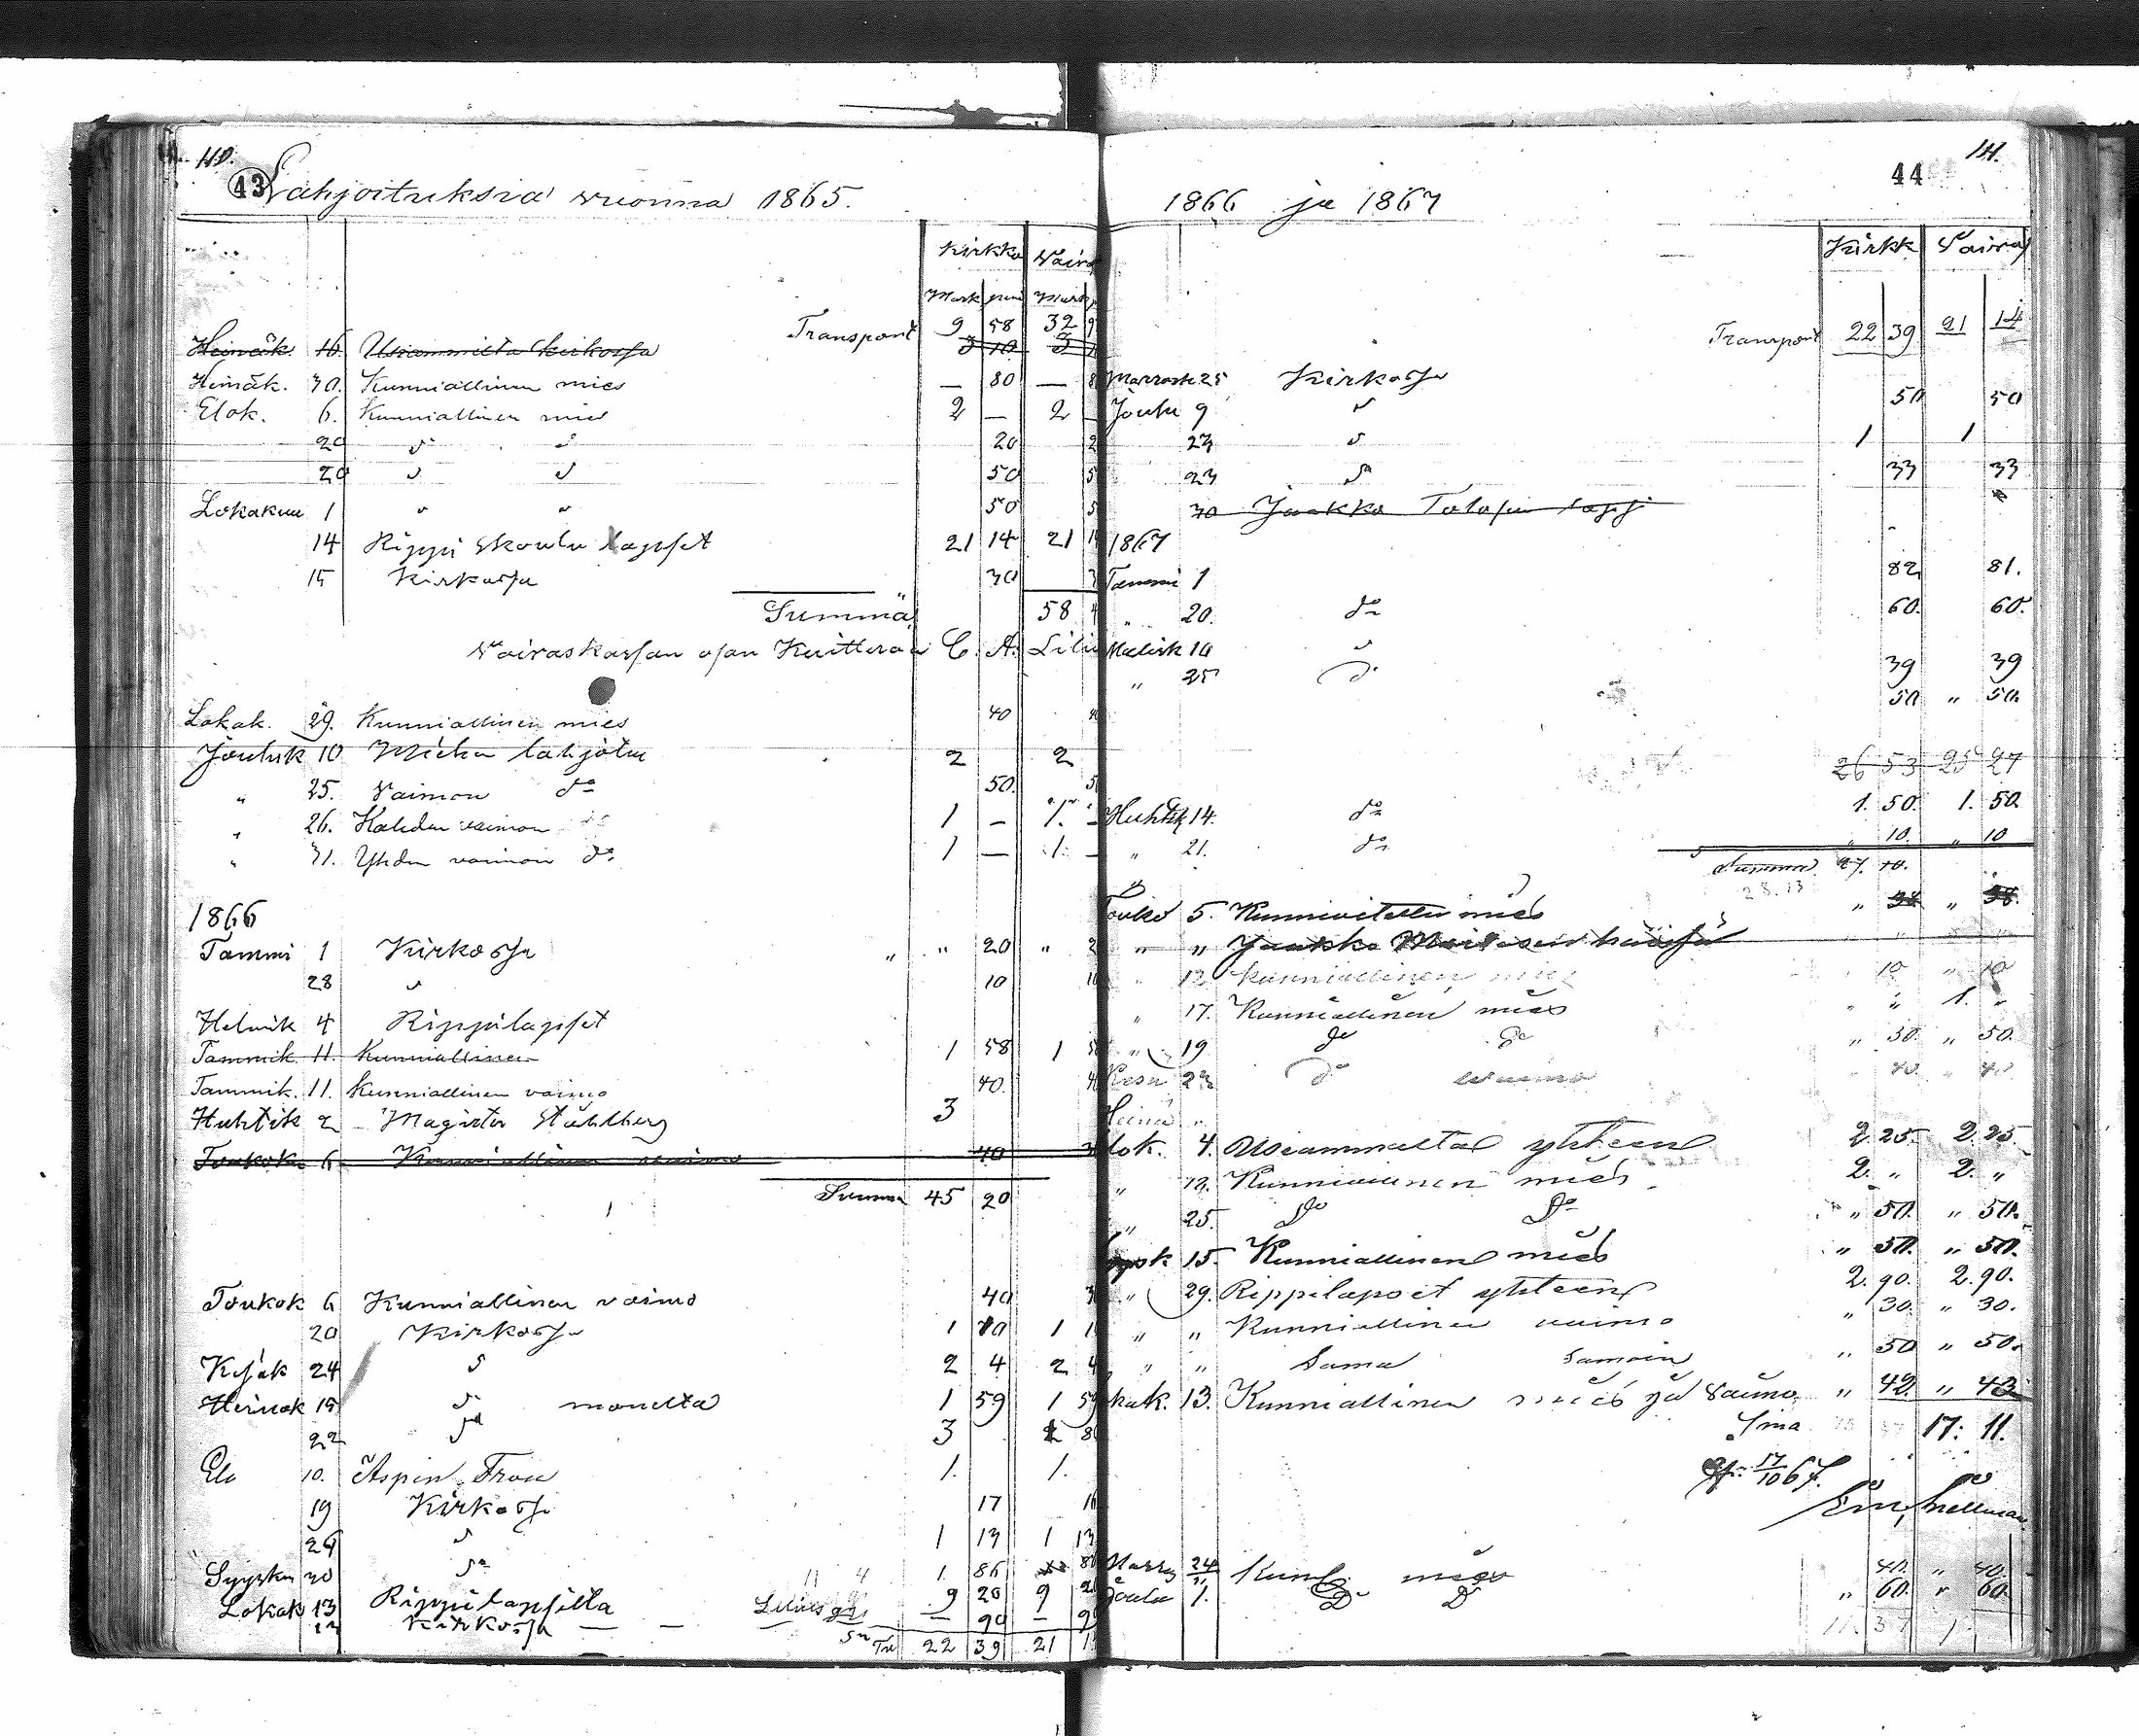 110.
43
Lahjoituksia vuonna 1865.
Kirkko Vaiva
Mark peni Mark
Transport 9 58 32 9
Heinäk. 16. Usiammilta kirkossa 3 10 3
Heinäk. 30. Kunniallinen mies — 80 — 8
Elok. 6. Kunniallinen mies 2 — 2 —
20 " " 20 2
20 " " 50 5
Lokakuu 1 " " 50 5
14 Rippi Skoulu lapset 21 14 21 14
15 Kirkossa 30 3
Summa 58 4
Vaivaskassan osan Kuitteraa C. A. Lilius
Lokak. 29. Kunniallinen mies 40 40
Jouluk 10 Miehen lahjoitus 2 2
" 25. Vaimon do 50. 5
" 26. Kahden vaimon do 1 — 1. —
" 31. Yhden vaimon do 1 — 1. —
1866
Tammi 1 Kirkossa " " 20 " 2
28 " 10 10
Helmik 4 Rippilapset
Tammik. 11. Kunniallinen 1 58 1 58
Tammik. 11. Kunniallinen vaimo 40. 4
Huhtik 2 Magister Ståhlberg 3
Toukok. 6 Kunniallinen vaimo 40 3
Summa 45 20
Toukok 6 Kunniallinen vaimo 40 3
20 Kirkossa 1 10 1 1
Kesäk 24 " 2 4 2 4
Heinäk 15 " monelta 1 59 1 59
22 " 3 2 8
Elo 10. Aspin Frou 1. 1.
19 Kirkossa 17 16
26 " 1 13 1 13
Syysku 30 " 1 86 8
Lokak 13 Rippilapsilta 9 20 9 2
Kirkossa — — — 90 — 9
22 39 21 1
44
141.
1866 ja 1867
Kirkk Vaiva
Transport 22 39 21 14
Marrask 25 Kirkossa 50 50
Joulu 9 "
23 " 1 1
23 " 33 33
30 Jaakko
1867
Tammi 1 82 81.
" 20. do 60. 60.
Maalisk 10 " 39 39
" 25 do 50 " 50.
26 53 25 27
Huhtik 14. do 1. 50. 1. 50
" 21. do " 10. " 10
Summa 27. 10.
28.13
Touko 5. Kunnioitettu mies
" " Jaakko häissä
" 12. Kunniallinen mies 10 " 10
" 17. Kunniallinen mies " " 1. "
" 19 do do " 50. " 50.
Kesä 23 do vaimo " 40. " 40
Heinä "
Elok. 4. Usiammalta yhteen 2. 25. 2. 25.
" 12. Kunniallinen mies 2. " 2. "
" 25. do do " 50. " 50.
Syysk 15. Kunniallinen mies " 50. " 50.
" 29. Rippilapset yhteen 2. 90. 2. 90.
" " Kunniallinen vaimo " 30. " 30.
" " Sama samoin " 50 " 50.
Lokak. 13. Kunniallinen mies ja vaimo " 42. " 43
Sma 17: 11.
17/10 67.
Snellman
Marras 24 Kunl. mies 40. " 40.
Joulu 1. do do " 60. " 60.
11. 37